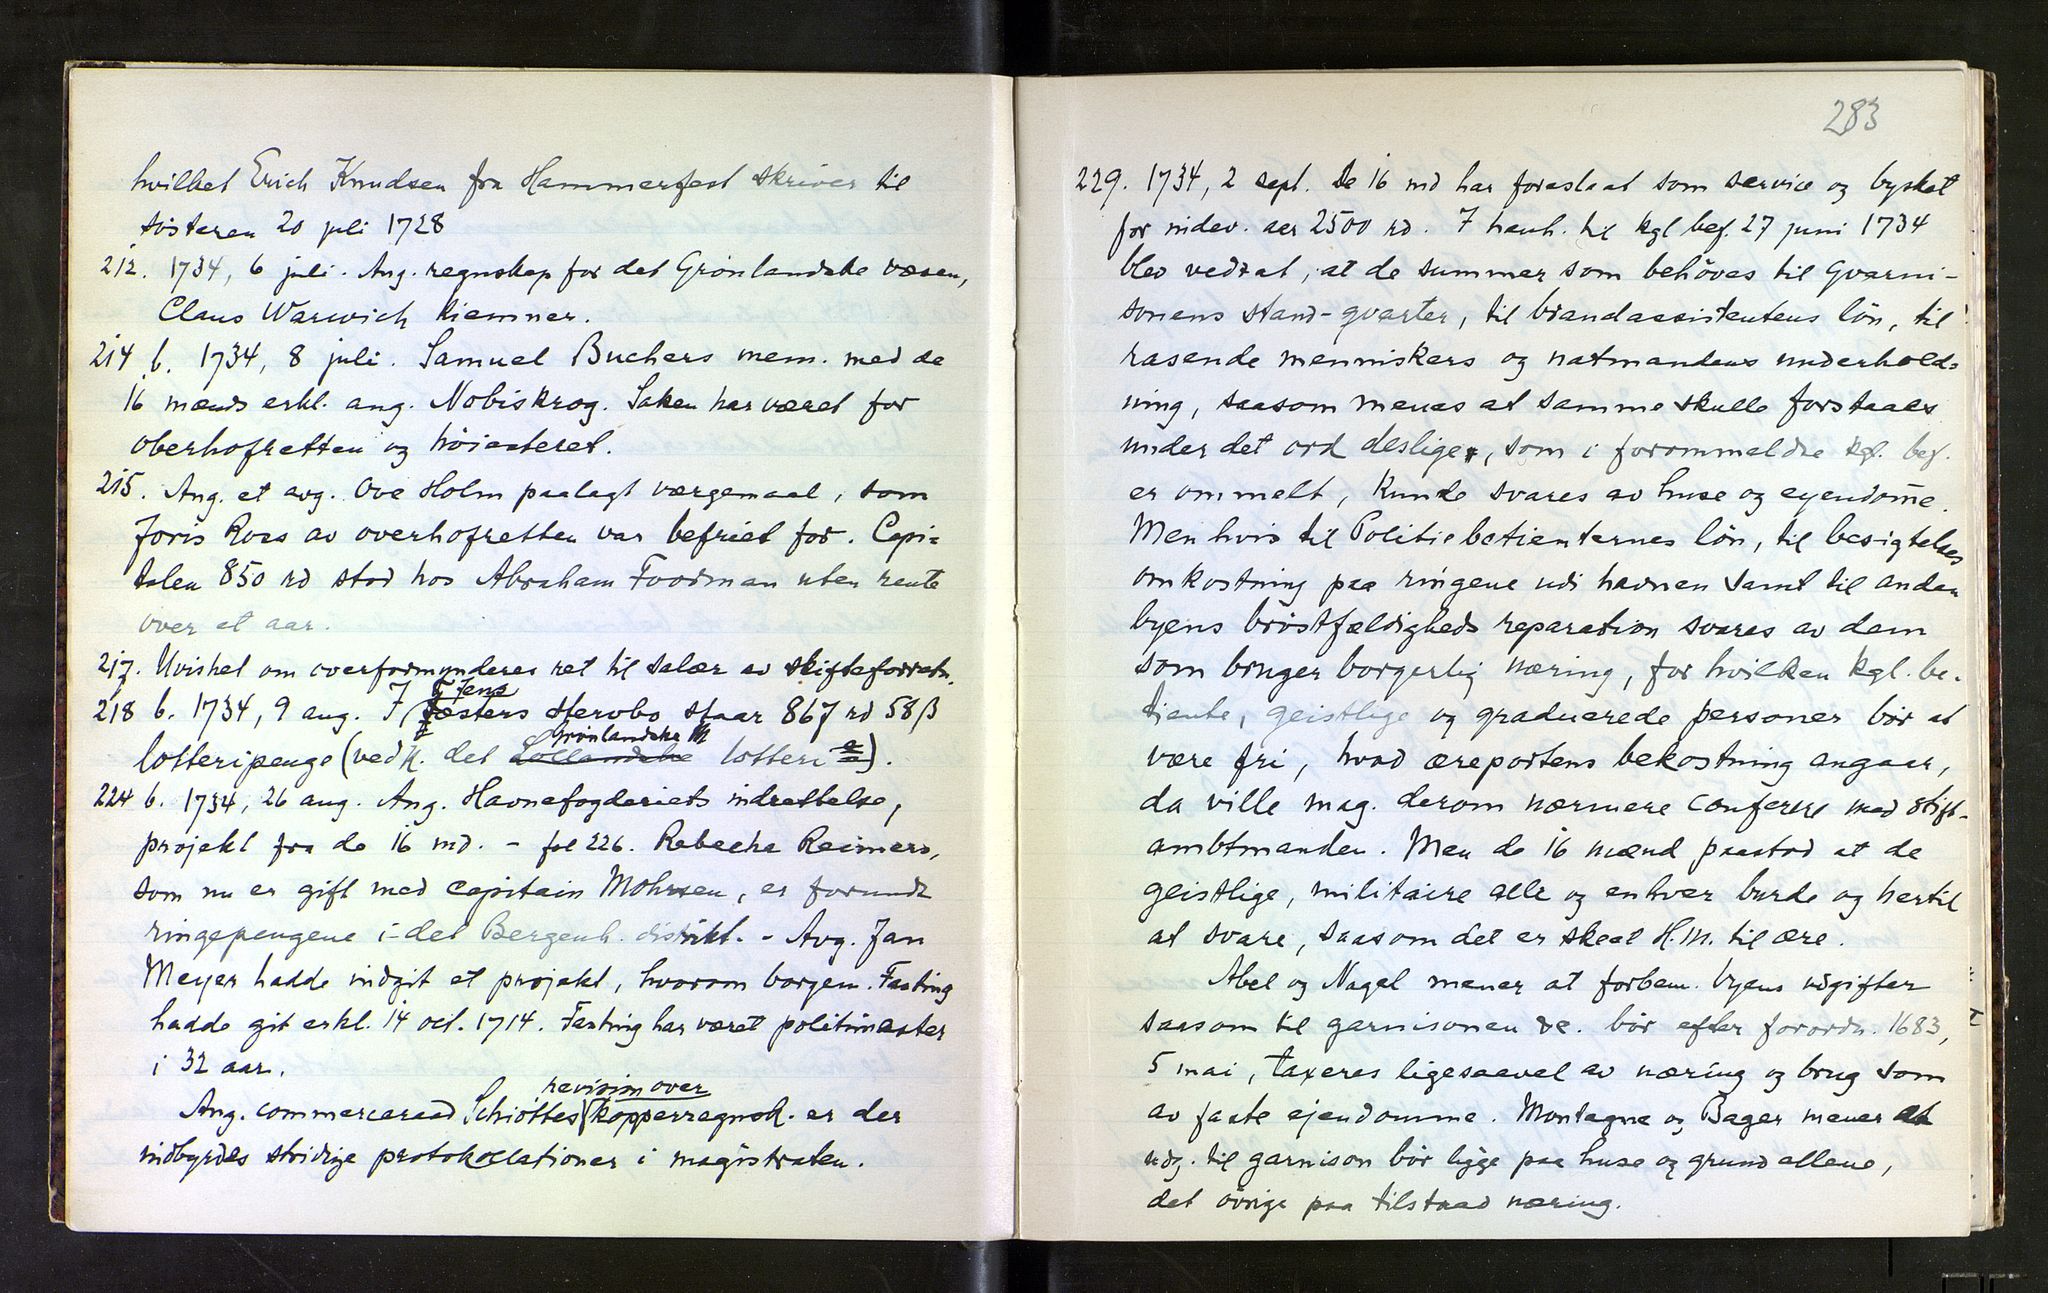 hvilket Erich Knudsen fra Hammerfest skriver til
søsteren 20 juli 1728
212. 1734, 6 juli. Ang. regnskap for det Grönlandske væsen,
Claus Warwich kiemner.
214 b. 1734, 8 juli. Samuel Buchers mem. med de
16 mænds erkl. ang. Nobiskrog. Saken har været for
oberhofretten og höiesteret.
215. Ang. et avg. Ove Holm paalagt værgemaal, som
Joris Roes av overhofretten var befriet for. Capi=
talen 850 rd stod hos Abraham Foodman uten rente
over et aar.
217. Uvished om overformynderes ret til salær av skifteforretn.
218 b. 1734, 9 aug. I Jens sterbo staar 867 rd 58 β
lotteripenge (vedk. det Lollandske Grönlandske lotteri).
224 b. 1734, 26 aug. Ang. Havnefogderiets indrettelse,
projekt fra de 16 md. - fol 226. Rebecha Reimers,
som nu er gift med capitain Mohrsen, er forundt
ringepengene i det Bergenh. distrikt. - Avg. Jan
Meyer hadde indgit et projekt, hvorom borgem. Fasting
hadde git erkl. 14 oct. 1714. Fasting har været politimester
i 32 aar.
revision over
Ang. commerceraad Schiöttes kopperregnsk. er der
indbyrdes stridige protokollationer i magistraten.
283
229. 1734, 2 sept. De 16 md har foreslaat som service og byskat
for indev. aar 2500 rd. I henh. til kgl bef. 27 juni 1734
blev vedtat, at de summer som behöves til Gvarni-
sonens stand-qvarter, til brandassistentens lön, til
rasende menniskers og natmandens underhold=
ning, saasom menes at samme skulle forstaaes
under det ord deslige, som i forommeldte kgl. bef.
er ommelt, kunde svares av huse og eyendomme.
Men hvis til Politiebetienternes lön, til besigtelses
omkostning paa ringene udi havnen samt til anden
byens bröstfældigheds reparation svares av dem
som bruger borgerlig næring, for hvilken kgl. be-
tiente, geistlige og graduerede personer bör at
være fri, hvad æreportens bekostning angaar,
da ville mag. derom nærmere conferere med stift-
ambtmanden. Men de 16 mænd paastod at de
geistlige, militaire alle og enhver burde og hertil
at svare, saasom det er skeet H.M. til ære.
Abel og Nagel mener at forbem. byens udgifter
saasom til garnisonen &c. bör efter forordn. 1683,
5 mai, taxeres ligesaavel av næring og brug som
av faste ejendomme. Montagne og Bager mener at
udg. til garnison bör ligge paa huse og grund allene,
det övrige paa tilstaad næring.